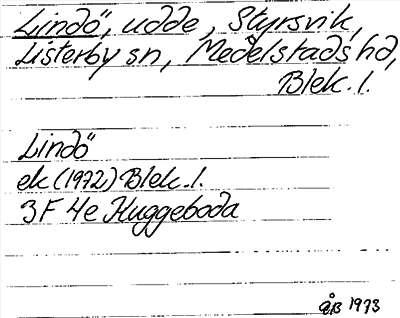 Lindö, udde, Styrsvik,
Listerby sn, Medelstads hd,
Blek. l.
Lindö
ek (1972) Blek. l.
3F 4e Kuggeboda
1973